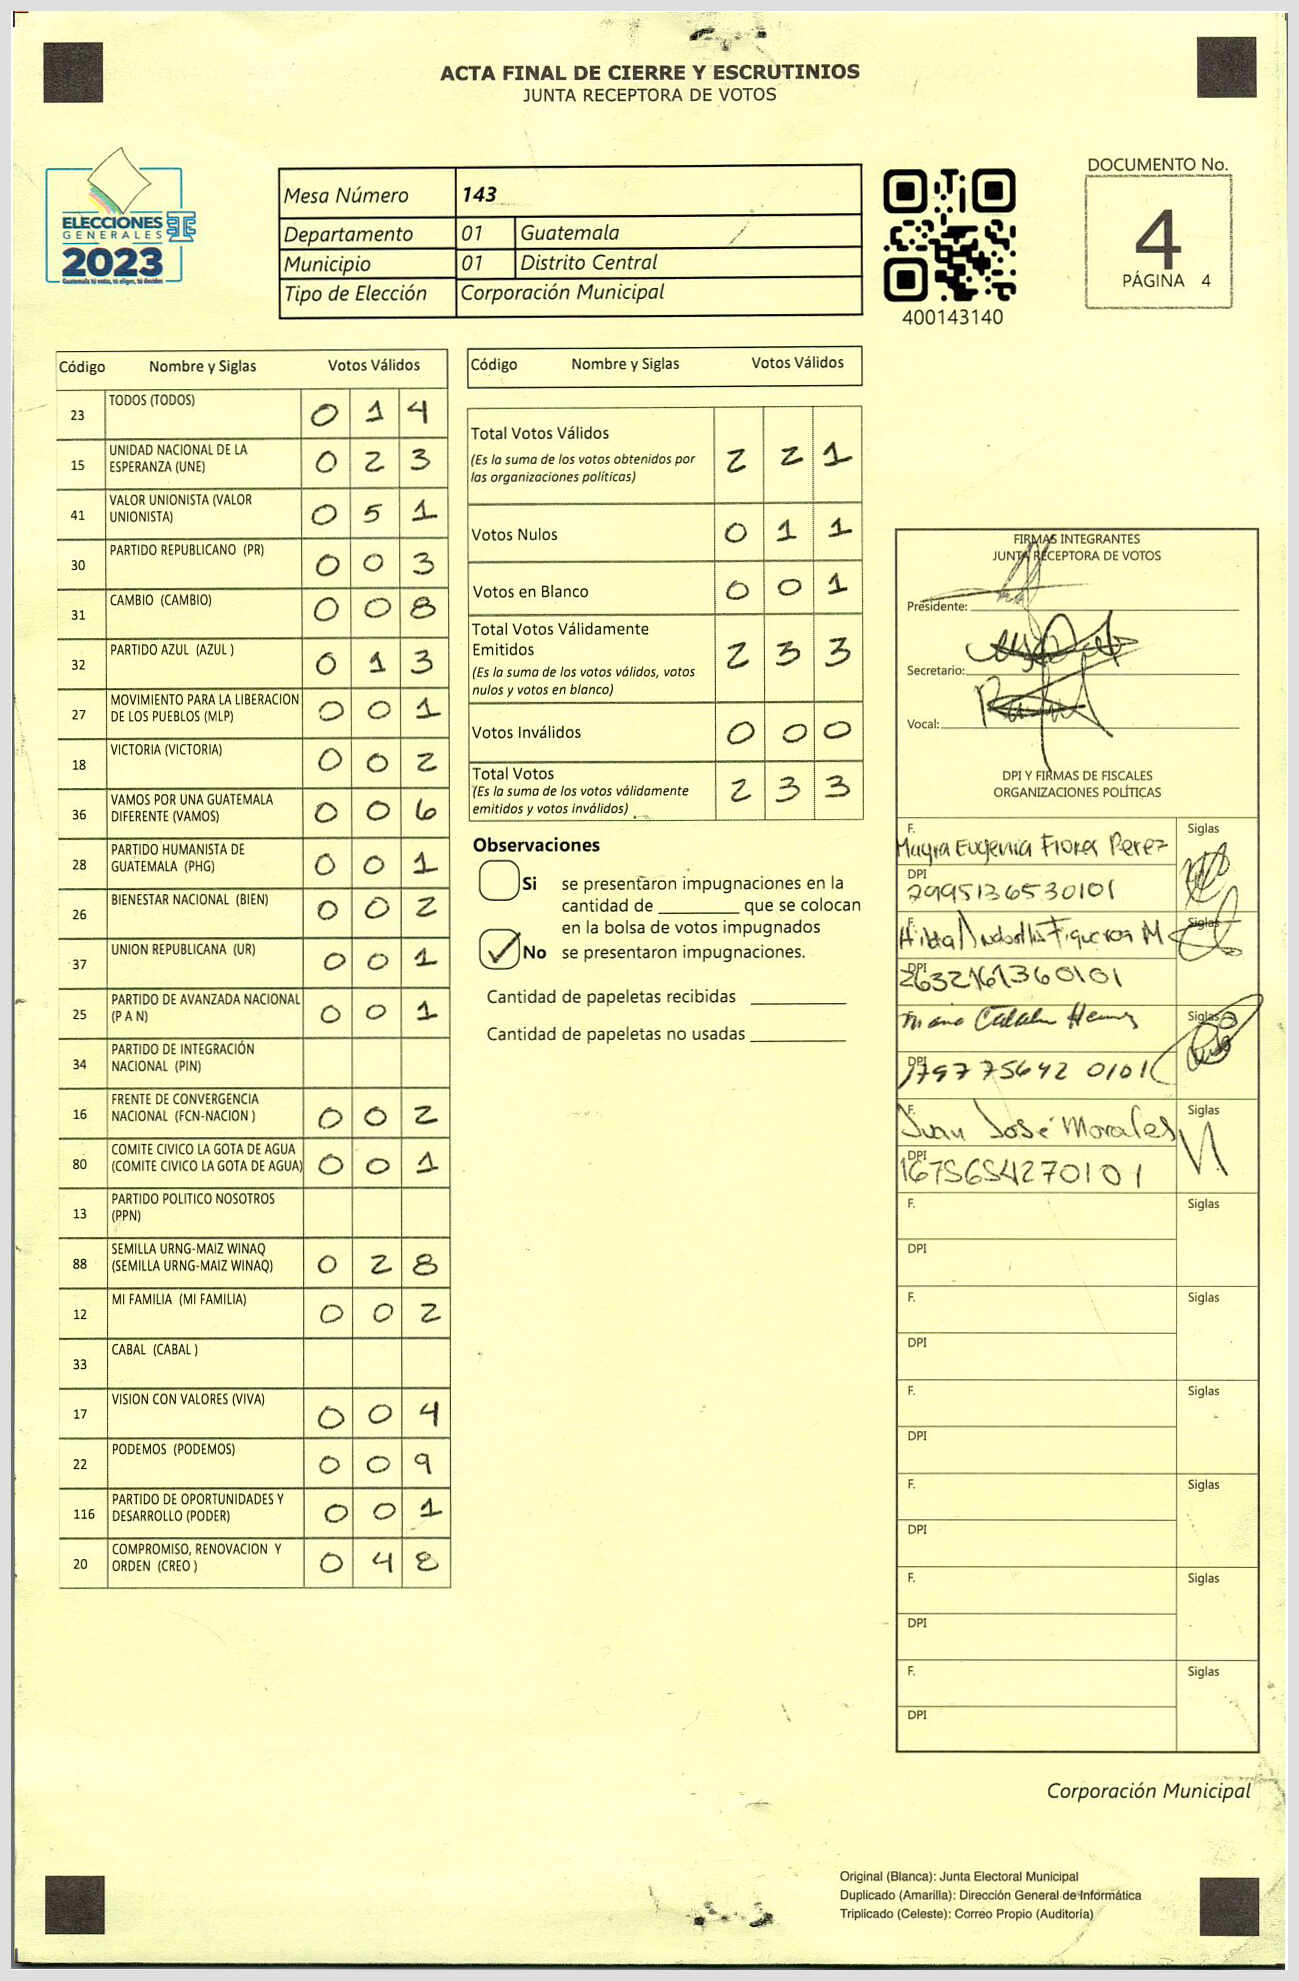 ACTA FINAL DE CIERRE Y ESCRUTINIOS
JUNTA RECEPTORA DE VOTOS
ELECCIONES
GENERALES
2023
Guatemala tú votas, tú eliges, tú decides
Mesa Número 143
Departamento 01 Guatemala
Municipio 01 Distrito Central
Tipo de Elección Corporación Municipal
400143140
DOCUMENTO No.
4
PÁGINA 4
Código Nombre y Siglas Votos Válidos
23 TODOS (TODOS) 0 1 4
15 UNIDAD NACIONAL DE LA
ESPERANZA (UNE) 0 2 3
41 VALOR UNIONISTA (VALOR
UNIONISTA) 0 5 1
30 PARTIDO REPUBLICANO (PR) 0 0 3
31 CAMBIO (CAMBIO) 0 0 8
32 PARTIDO AZUL (AZUL ) 0 1 3
27 MOVIMIENTO PARA LA LIBERACION
DE LOS PUEBLOS (MLP) 0 0 1
18 VICTORIA (VICTORIA) 0 0 2
36 VAMOS POR UNA GUATEMALA
DIFERENTE (VAMOS) 0 0 6
28 PARTIDO HUMANISTA DE
GUATEMALA (PHG) 0 0 1
26 BIENESTAR NACIONAL (BIEN) 0 0 2
37 UNION REPUBLICANA (UR) 0 0 1
25 PARTIDO DE AVANZADA NACIONAL
(P A N) 0 0 1
34 PARTIDO DE INTEGRACIÓN
NACIONAL (PIN)
16 FRENTE DE CONVERGENCIA
NACIONAL (FCN-NACION ) 0 0 2
80 COMITE CIVICO LA GOTA DE AGUA
(COMITE CIVICO LA GOTA DE AGUA) 0 0 1
13 PARTIDO POLITICO NOSOTROS
(PPN)
88 SEMILLA URNG-MAIZ WINAQ
(SEMILLA URNG-MAIZ WINAQ) 0 2 8
12 MI FAMILIA (MI FAMILIA) 0 0 2
33 CABAL (CABAL )
17 VISION CON VALORES (VIVA) 0 0 4
22 PODEMOS (PODEMOS) 0 0 9
116 PARTIDO DE OPORTUNIDADES Y
DESARROLLO (PODER) 0 0 1
20 COMPROMISO, RENOVACION Y
ORDEN (CREO ) 0 4 8
Código Nombre y Siglas Votos Válidos
Total Votos Válidos
(Es la suma de los votos obtenidos por
las organizaciones políticas) 2 2 1
Votos Nulos 0 1 1
Votos en Blanco 0 0 1
Total Votos Válidamente
Emitidos 2 3 3
(Es la suma de los votos válidos, votos
nulos y votos en blanco)
Votos Inválidos 0 0 0
Total Votos
(Es la suma de los votos válidamente
emitidos y votos inválidos) 2 3 3
Observaciones
Si se presentaron impugnaciones en la
cantidad de ________ que se colocan
en la bolsa de votos impugnados
No se presentaron impugnaciones.
Cantidad de papeletas recibidas
Cantidad de papeletas no usadas
FIRMAS INTEGRANTES
JUNTA RECEPTORA DE VOTOS
Presidente:
Secretario:
Vocal:
DPI Y FIRMAS DE FISCALES
ORGANIZACIONES POLÍTICAS
F. Siglas
Mayra Eugenia Flores Perez
DPI
2995136530101
F. Siglas
Hilda Figueroa M
DPI
2632161360101
Siglas
DPI
1797756420101
F. Siglas
Juan José Morales
DPI
1675654270101
F. Siglas
DPI
F. Siglas
DPI
F. Siglas
DPI
F. Siglas
DPI
F. Siglas
DPI
F. Siglas
DPI
Corporación Municipal
Original (Blanca): Junta Electoral Municipal
Duplicado (Amarilla): Dirección General de Informática
Triplicado (Celeste): Correo Propio (Auditoría)